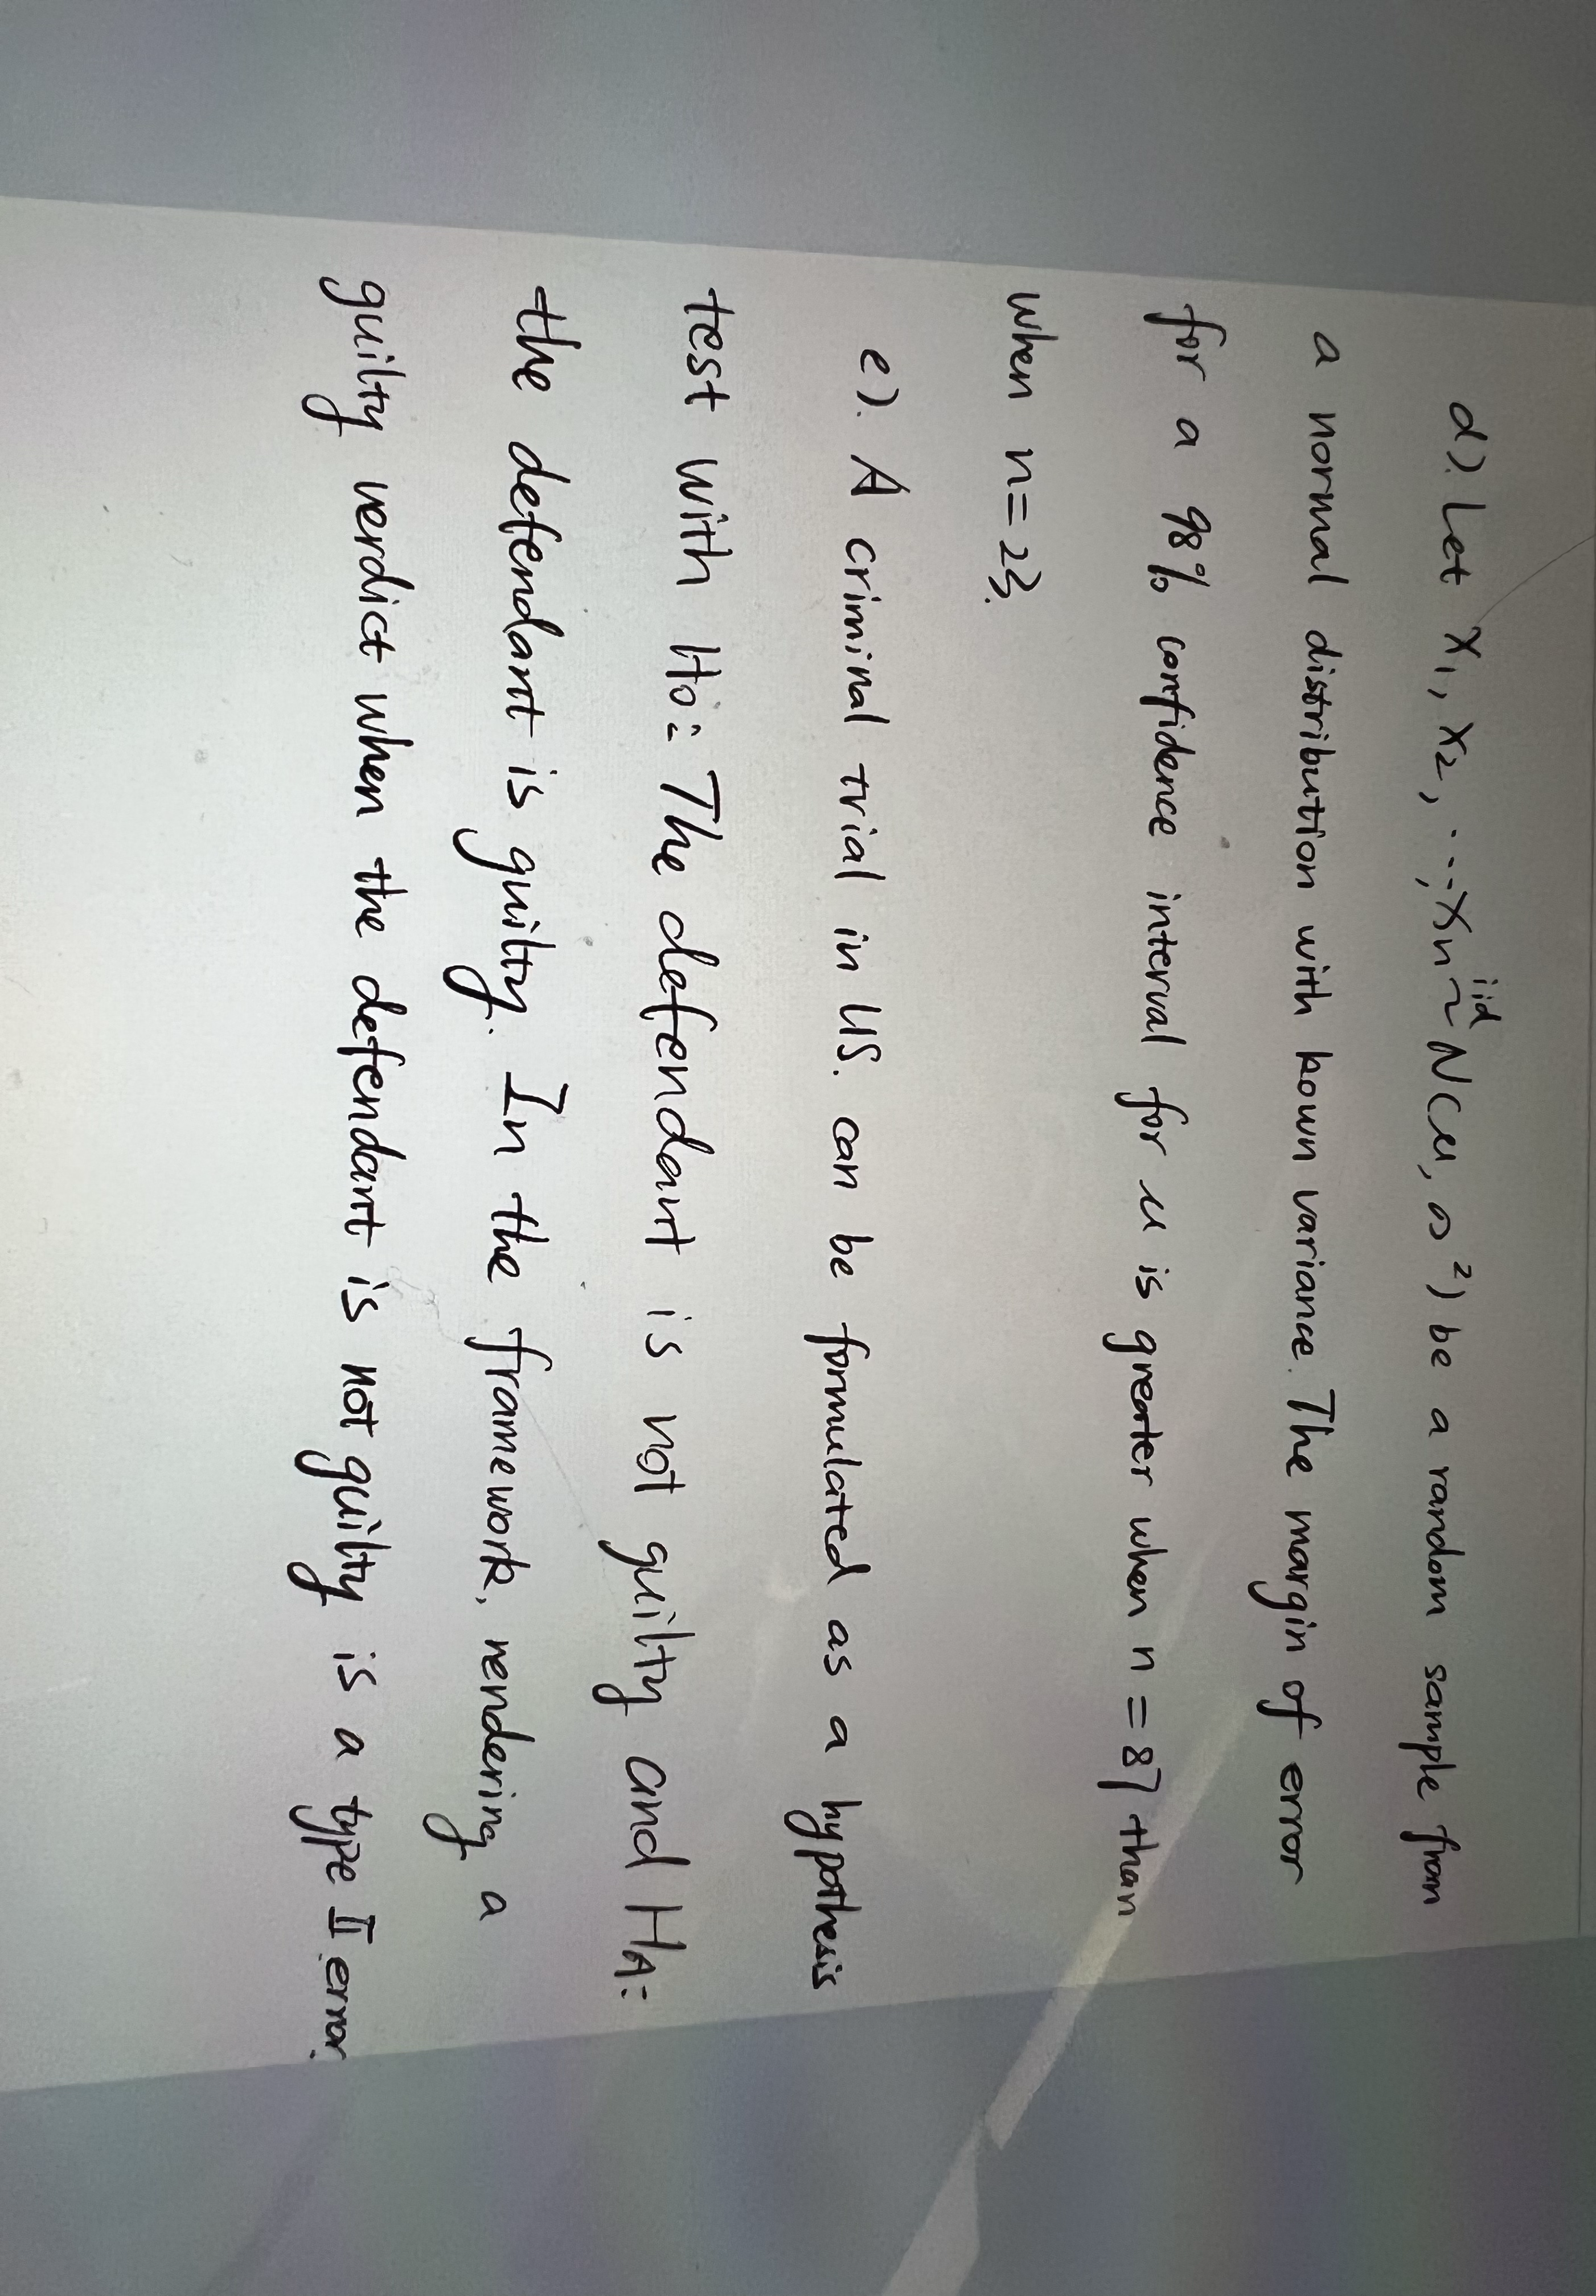 d). Let X1, X2, ..., Xn iid~ N(μ, σ²) be a random sample from
a normal distribution with kown variance. The margin of error
for a 98% confidence interval for μ is greater when n = 87 than
when n = 23.
e). A criminal trial in US. can be formulated as a hypothesis
test with Ho: The defendant is not guilty and HA:
the defendant is guilty. In the framework, rendering a
guilty verdict when the defendant is not guilty is a type II error.